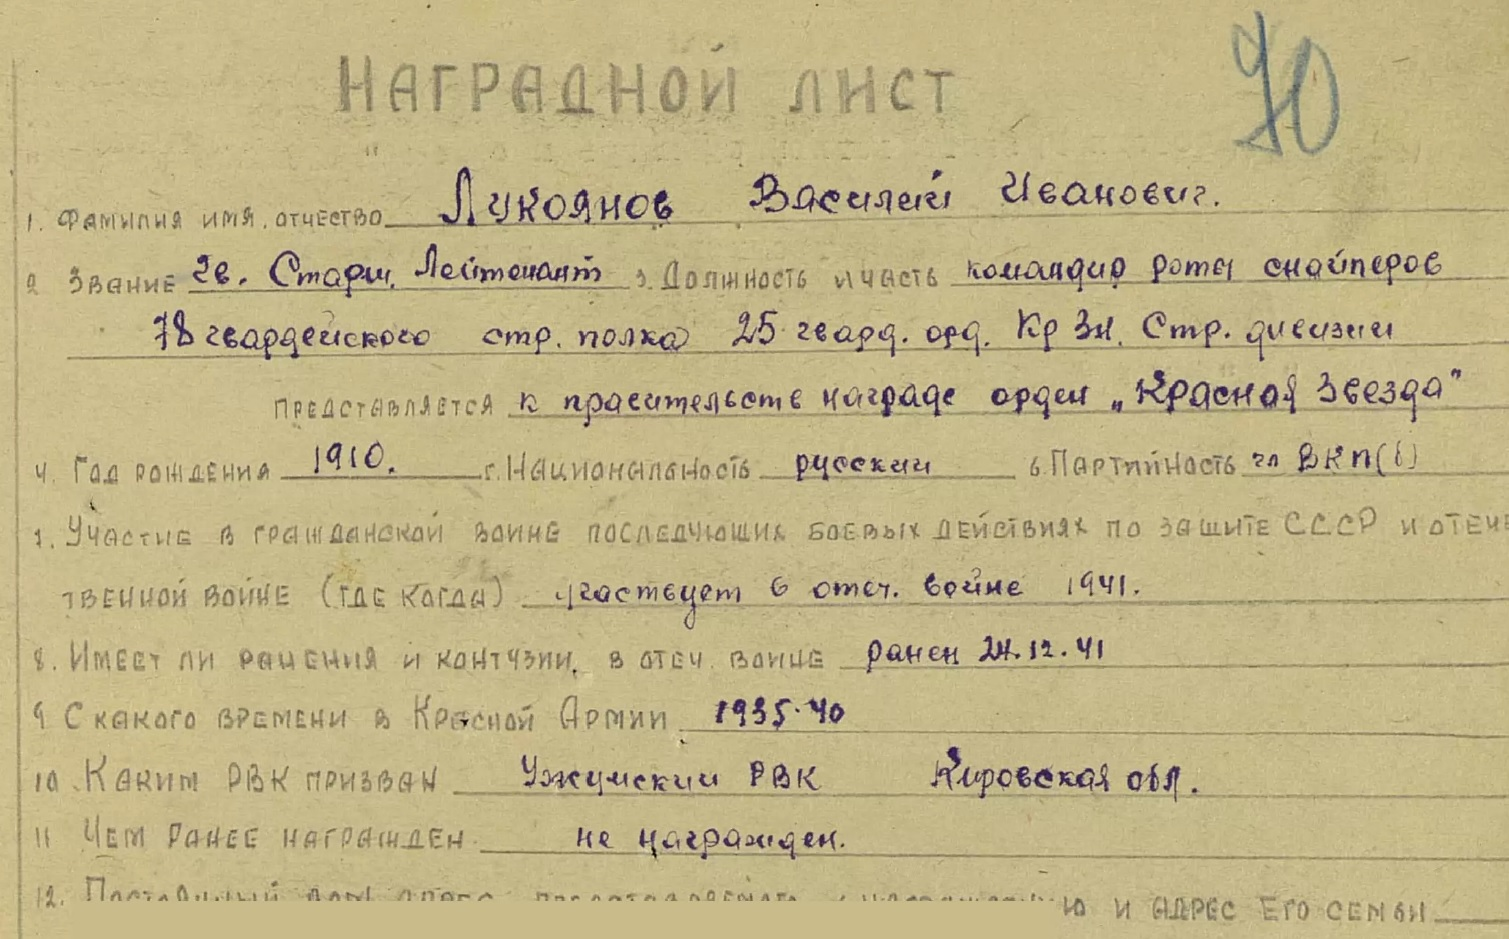 70
НАГРАДНОЙ ЛИСТ
1. Фамилия имя. отчество Лукоянов Василий Иванович.
2 Звание Гв. Старш. Лейтенант 3. Должность и часть командир роты снайперов
78 гвардейского стр. полка 25 гвард. орд. Кр Зн. Стр. дивизии
представляется к правительств награде орден „Красная Звезда"
4. Год рождения 1910. г. Национальность русский 6. Партийность чл ВКП(б)
7. Участие в гражданской войне последующих боевых действиях по защите СССР и отече
твенной войне (где когда) участвует в отеч. войне 1941.
8. Имеет ли ранения и контузии, в отеч. войне ранен 24.12.41
9 С какого времени в Красной Армии 1935-40
10. Каким РВК призван Уржумский РВК Кировская обл.
11 Чем ранее награжден не награжден.
12. и адрес его семьи